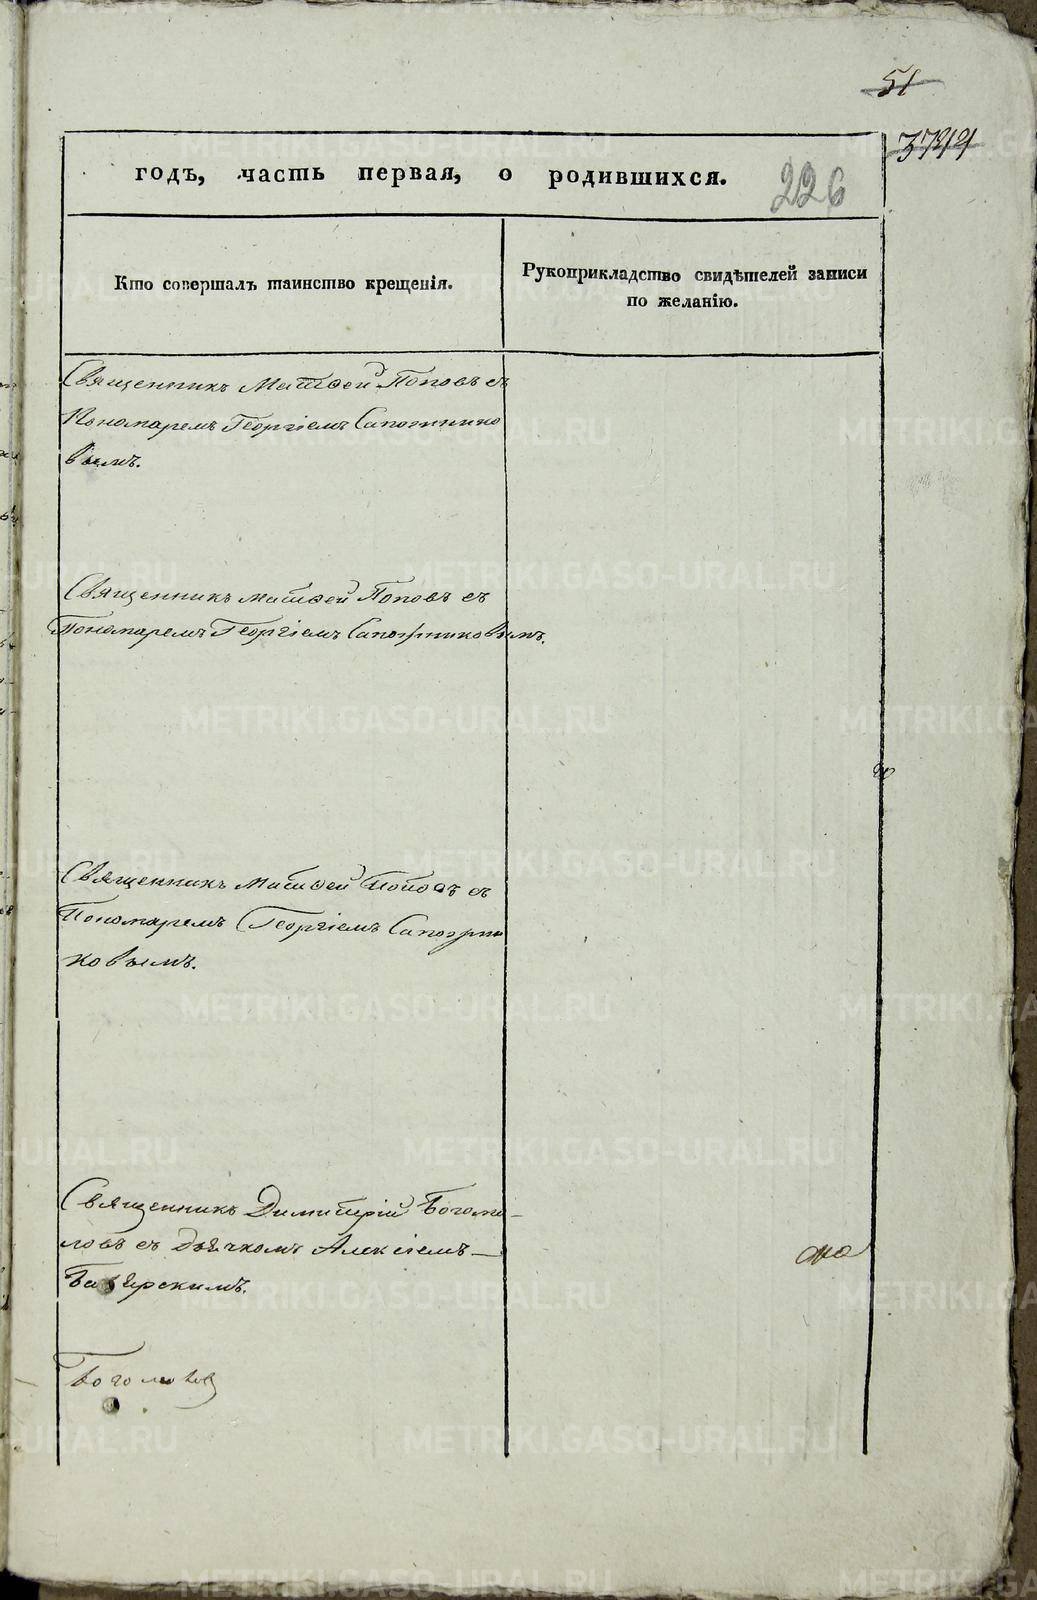 51
годъ, часть первая, о родившихся.
226
Кто совершалъ таинство крещенія.
Рукоприкладство свидѣтелей записи
по желанію.
Священникъ Матѳей Поповъ съ
Пономаремъ Георгіемъ Сапожнико
вымъ.
Священникъ Матѳей Поповъ съ
Пономаремъ Георгіемъ Сапожниковымъ.
Священникъ Матѳей Поповъ съ
Пономаремъ Георгіемъ Сапожни
ковымъ.
Священникъ Димитрій Богомо-
ловъ съ Дьячкомъ Алексіемъ
METRIKI.GASO-URAL.RU